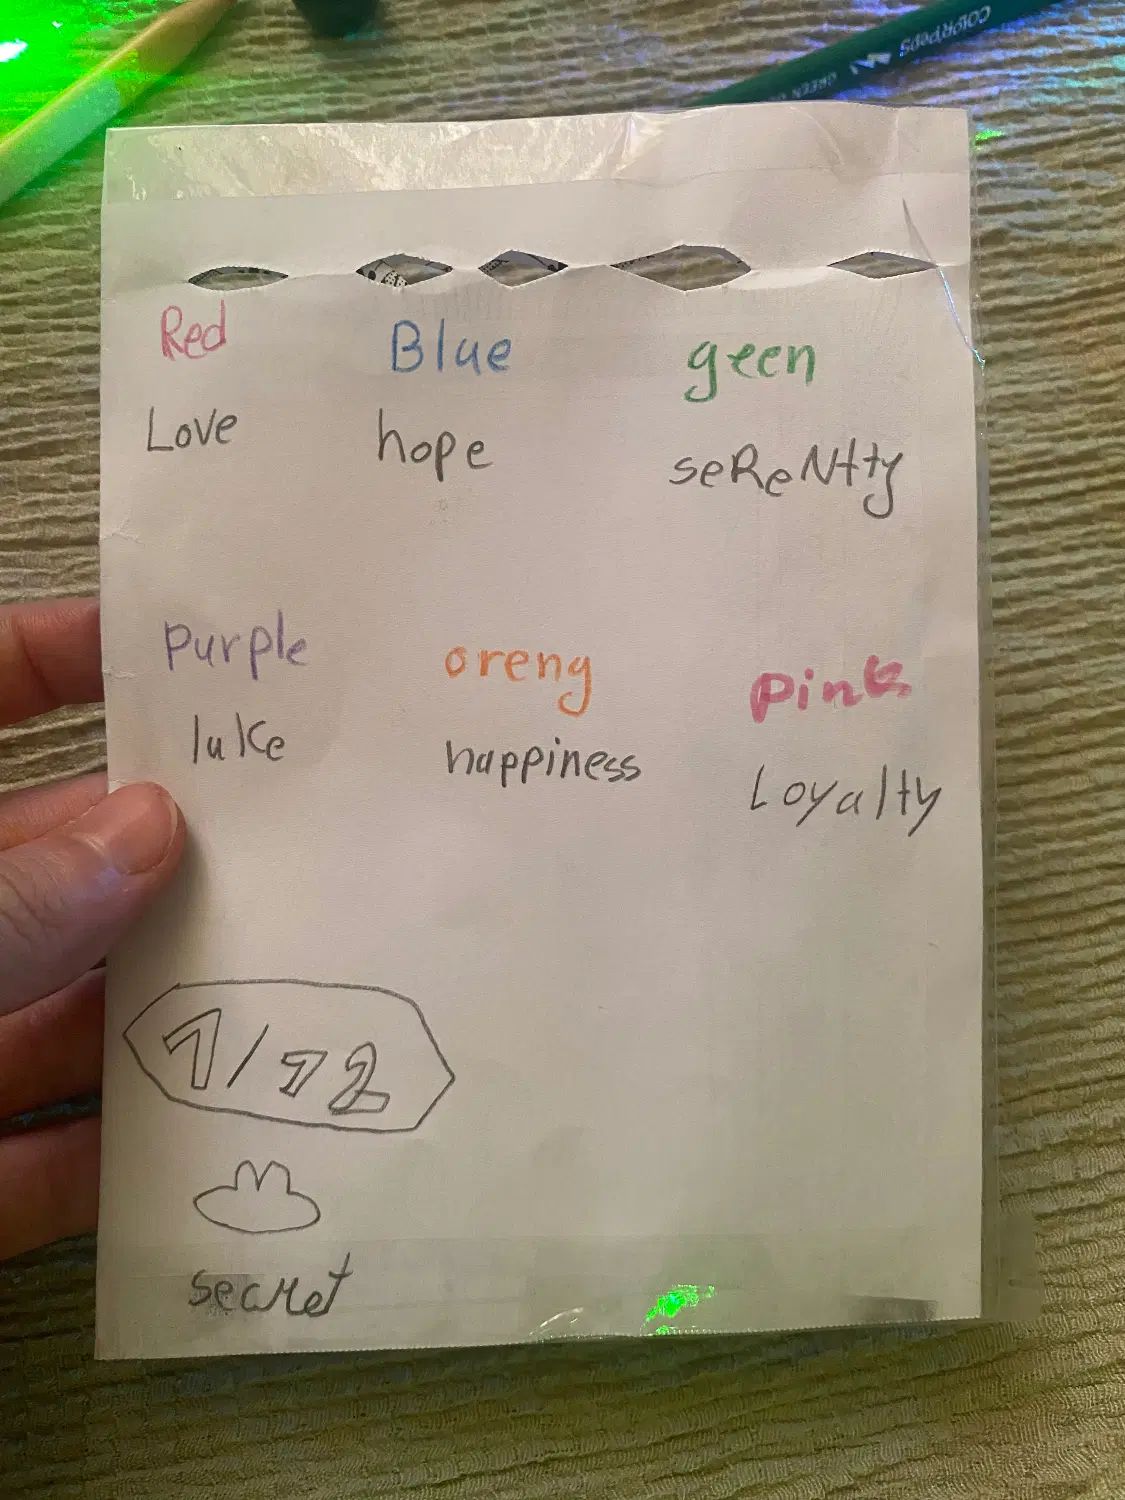 COLORPeps
GREEN
Red Blue geen
Love hope seReNtty
purple oreng pink
luke happiness Loyalty
1/12
secret